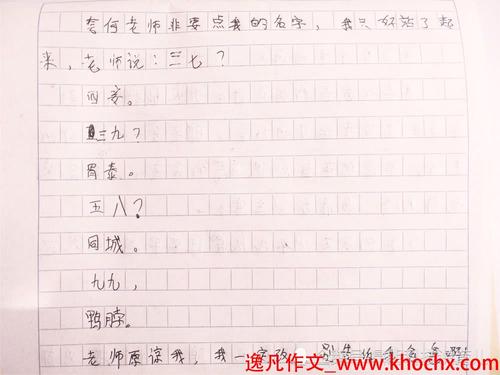 奈何老师非要点我的名字，我只好站了起
来，老师说：三七？
西安。
三九？
胃泰。
五八？
同城。
九九，
鸭脖。
老师原谅我，我一定改
逸凡作文_www.khochx.com